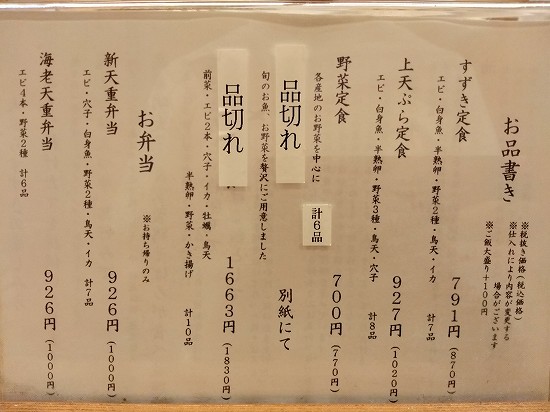 お品書き
※税抜き価格（税込価格）
※仕入れにより内容が変更する
場合がございます
※ご飯大盛り＋100円
すずき定食 791円（870円）
エビ・白身魚・半熟卵・野菜2種・鳥天・イカ 計7品
上天ぷら定食 927円（1020円）
エビ・白身魚・半熟卵・野菜3種・鳥天・穴子 計8品
野菜定食 700円（770円）
各産地のお野菜を中心に 計6品
品切れ 別紙にて
旬のお魚、お野菜を贅沢にご用意しました
品切れ 1663円（1830円）
前菜・エビ2本・穴子・イカ・牡蠣・鳥天
半熟卵・野菜・かき揚げ 計10品
お弁当
※お持ち帰りのみ
新天重弁当 926円（1000円）
エビ・穴子・白身魚・野菜2種・鳥天・イカ 計7品
海老天重弁当 926円（1000円）
エビ4本・野菜2種 計6品